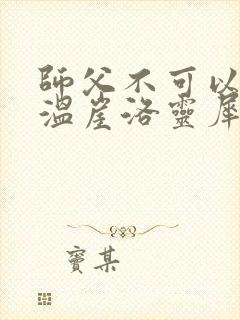 師父不可以
溫崖洛靈犀
竇某